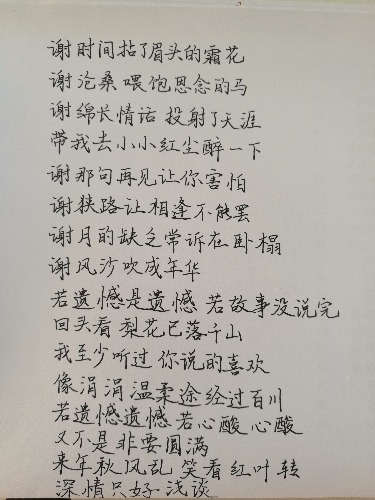 谢时间拈了眉头的霜花
谢沧桑喂饱思念的马
谢绵长情话 投射了天涯
带我去小小红尘醉一下
谢那句再见让你害怕
谢狭路让相逢不能罢
谢月的缺乏常诉在卧榻
谢风沙吹成年华
若遗憾是遗憾 若故事没说完
回头看 梨花已落千山
我至少听过 你说的喜欢
像涓涓温柔途经过百川
若遗憾遗憾 若心酸心酸
又不是非要圆满
来年秋风乱 笑看红叶转
深情只好浅谈